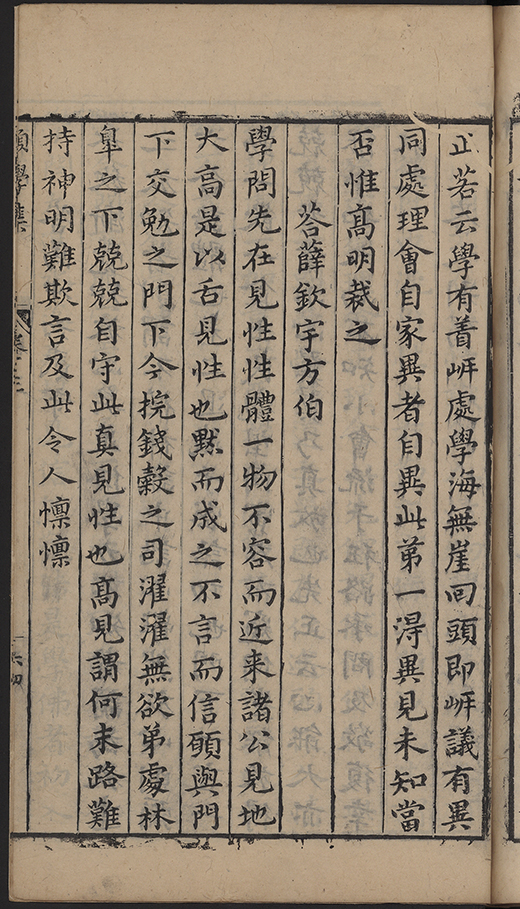 止若云學有着岸處學海無崖回頭即岸議有異
同處理會自家異者自異此弟一淂異見未知當
否惟高明裁之
荅薛欽宇方伯
學問先在見性性體一物不容而近来諸公見地
大高是以舌見性也黙而成之不言而信願與門
下交勉之門下今捖錢糓之司濯濯無欲弟處林
臯之下兢兢自守此真見性也高見謂何末路難
持神明難欺言及此令人懍懍
願學集